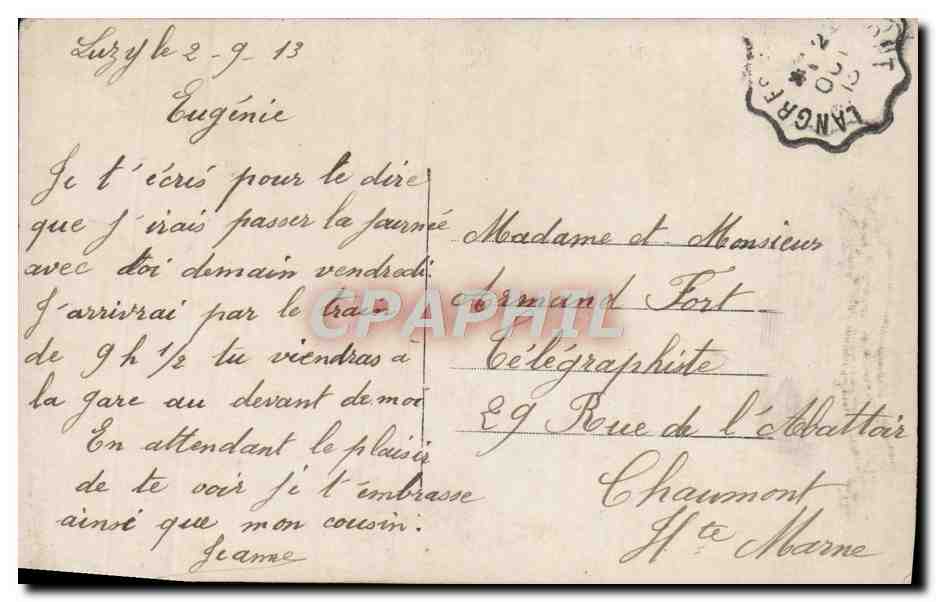 Luzy le 2-9-13
Eugénie
Je t'écris pour te dire
que j'irais passer la journée
avec toi demain vendredi.
J'arrivrai par le train
de 9 h 1/2 tu viendras à
la gare au devant de moi
En attendant le plaisir
de te voir je t'embrasse
ainsi que mon cousin.
Jeanne
Madame et Monsieur
Armand Fort
Télégraphiste
29 Rue de l'Abattoir
Chaumont
Hte Marne
LANGRES
CPAPHIL